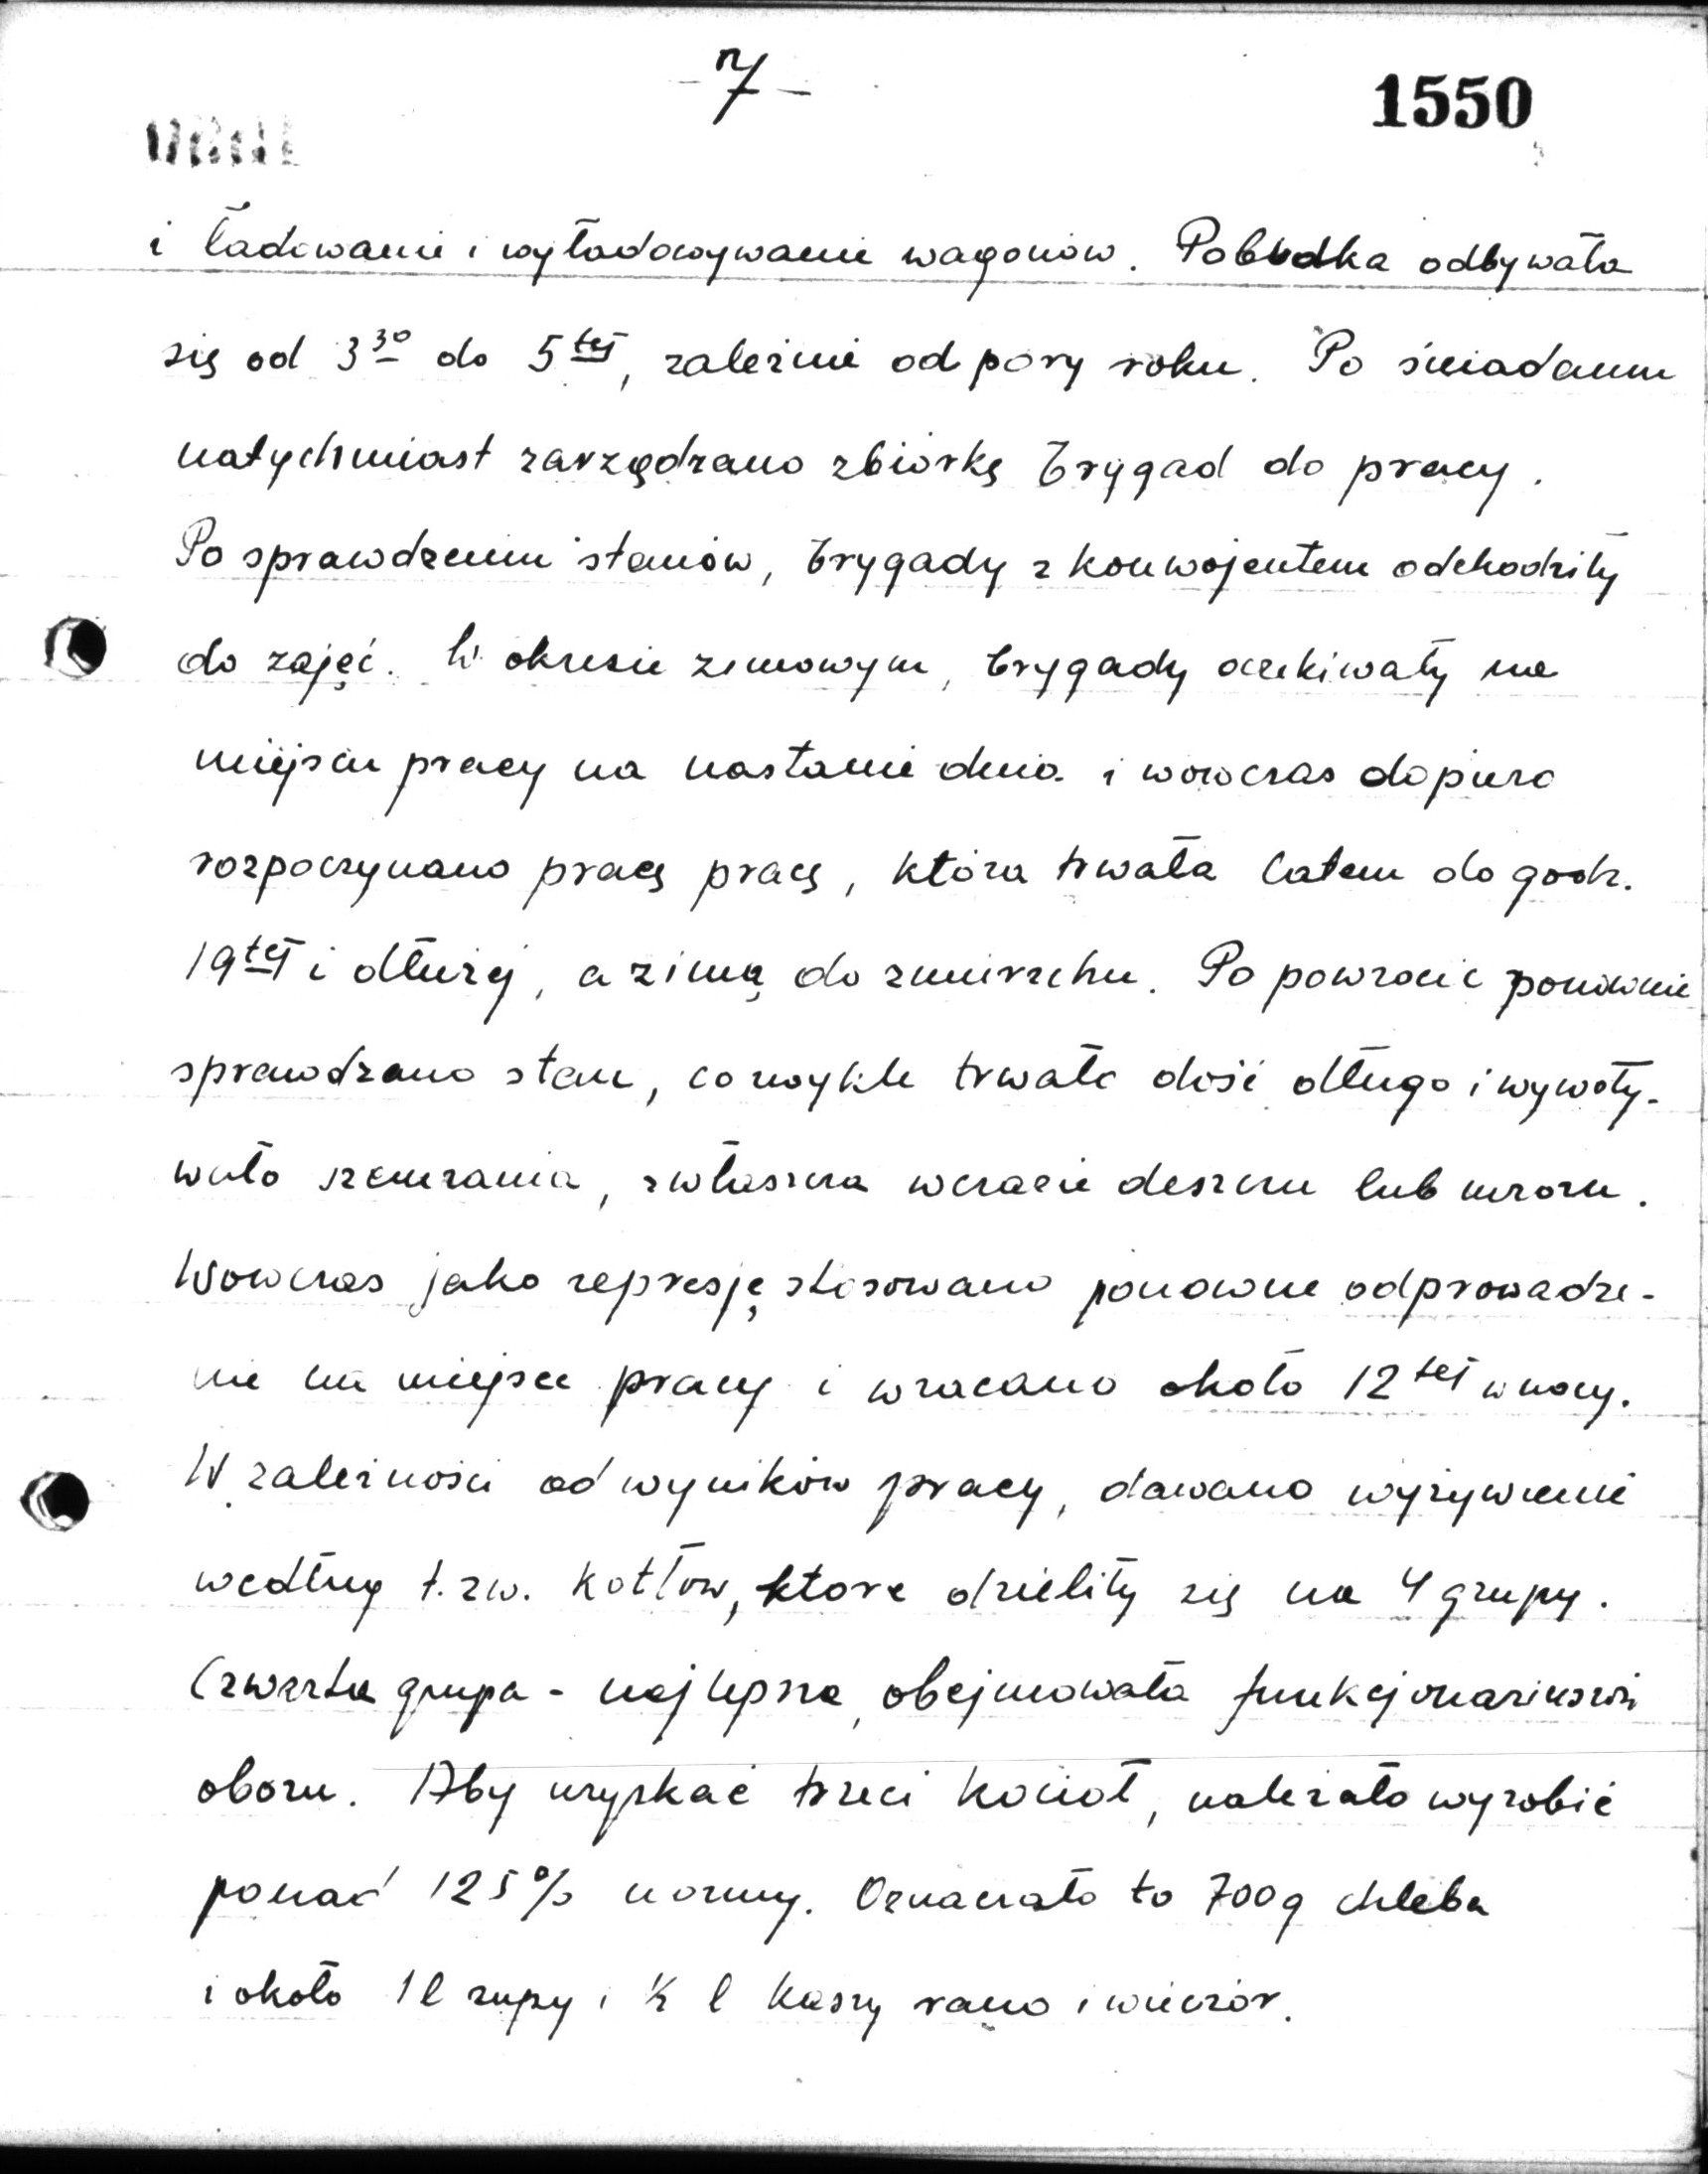 - 7 -
1550
i ładowanie i wyładowywanie wagonów. Pobudka odbywała
się od 3³⁰ do 5tej, zależnie od pory roku. Po śniadaniu
natychmiast zarządzano zbiórkę brygad do pracy.
Po sprawdzeniu stanów, brygady z konwojentem odchodziły
do zajęć. W okresie zimowym, brygady oczekiwały na
miejscu pracy na nastanie dnia i wówczas dopiero
rozpoczynano pracę pracę, która trwała latem do godz.
19tej i dłużej, a zimą do zmierzchu. Po powrocie ponownie
sprawdzano stan, co zwykle trwało dość długo i wywoły-
wało szemrania, zwłaszcza w czasie deszczu lub mrozu.
Wówczas jako represję stosowano ponowne odprowadze-
nie na miejsce pracy i wracano około 12tej w nocy.
W zależności od wyników pracy, dawano wyżywienie
według t.zw. kotłów, które dzieliły się na 4 grupy.
Czwarta grupa - najlepsza, obejmowała funkcjonariuszów
obozu. Aby uzyskać trzeci kocioł, należało wyrobić
ponad 125% normy. Oznaczało to 700g chleba
i około 1 l zupy i ½ l kaszy rano i wieczór.